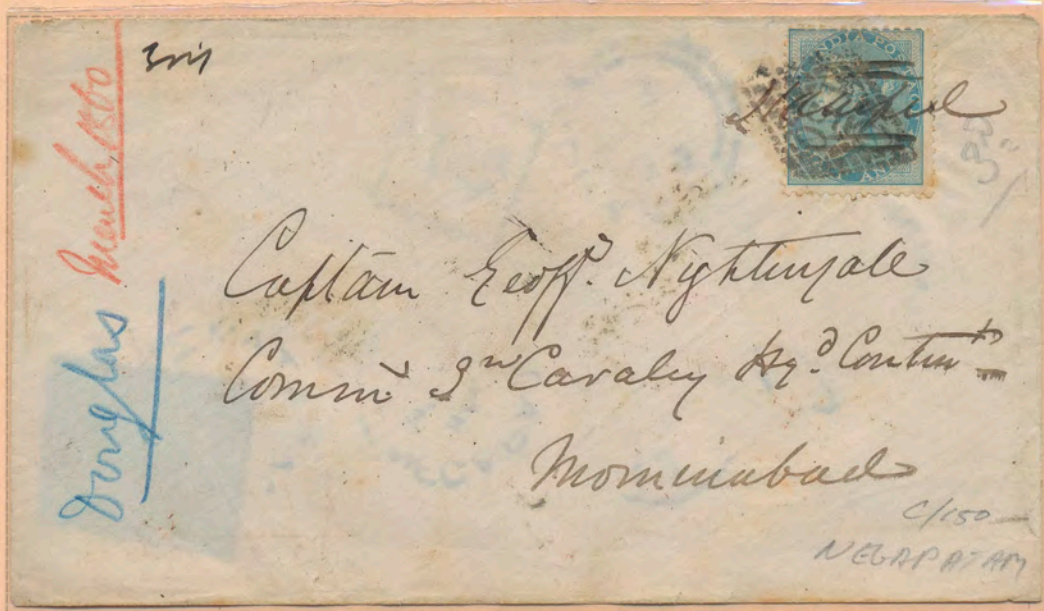 March 1860
Douglas
INDIA POSTAGE
Captain Geoff. Nightingale
Comm 3rd Cavalry Hyd. Contint
Mominabad
C/150
NEGAPATAM